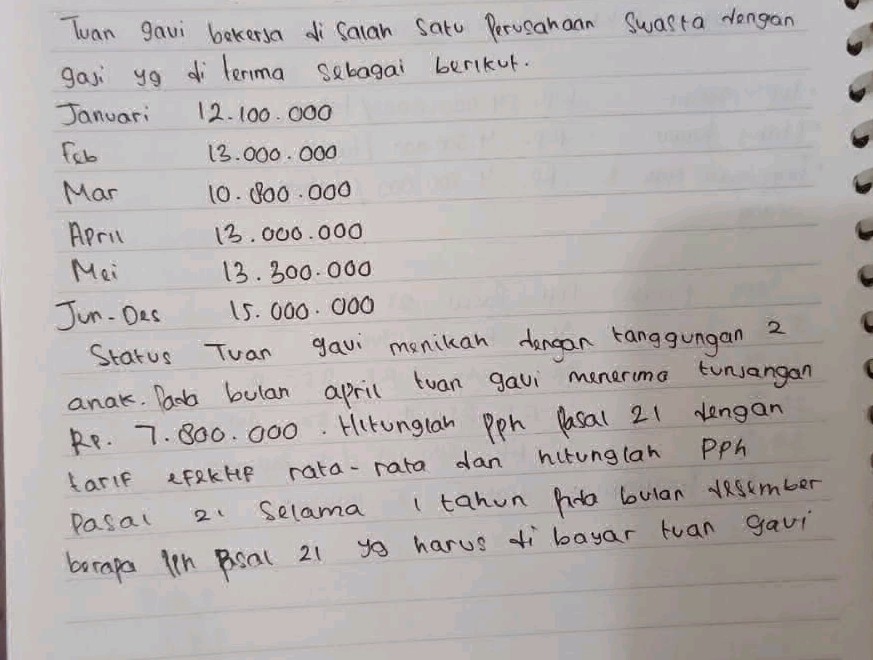 Tuan gavi bekerja di salah satu Perusahaan Swasta dengan
gaji yg di terima sebagai berikut.
Januari 12.100.000
Feb 13.000.000
Mar 10.800.000
April 13.000.000
Mei 13.300.000
Jun-Des 15.000.000
Status Tuan gavi menikah dengan tanggungan 2
anak. Pada bulan april tuan gavi menerima tunjangan
Rp. 7.800.000. Hitunglah pph Pasal 21 dengan
tarif efektif rata-rata dan hitunglah PPh
Pasal 21 Selama 1 tahun Pada bulan desember
berapa PPh Pasal 21 yg harus di bayar tuan gavi